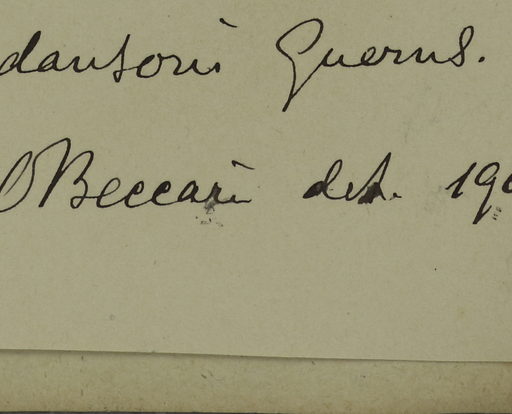 dansoni Guerns.
O Beccari det. 190